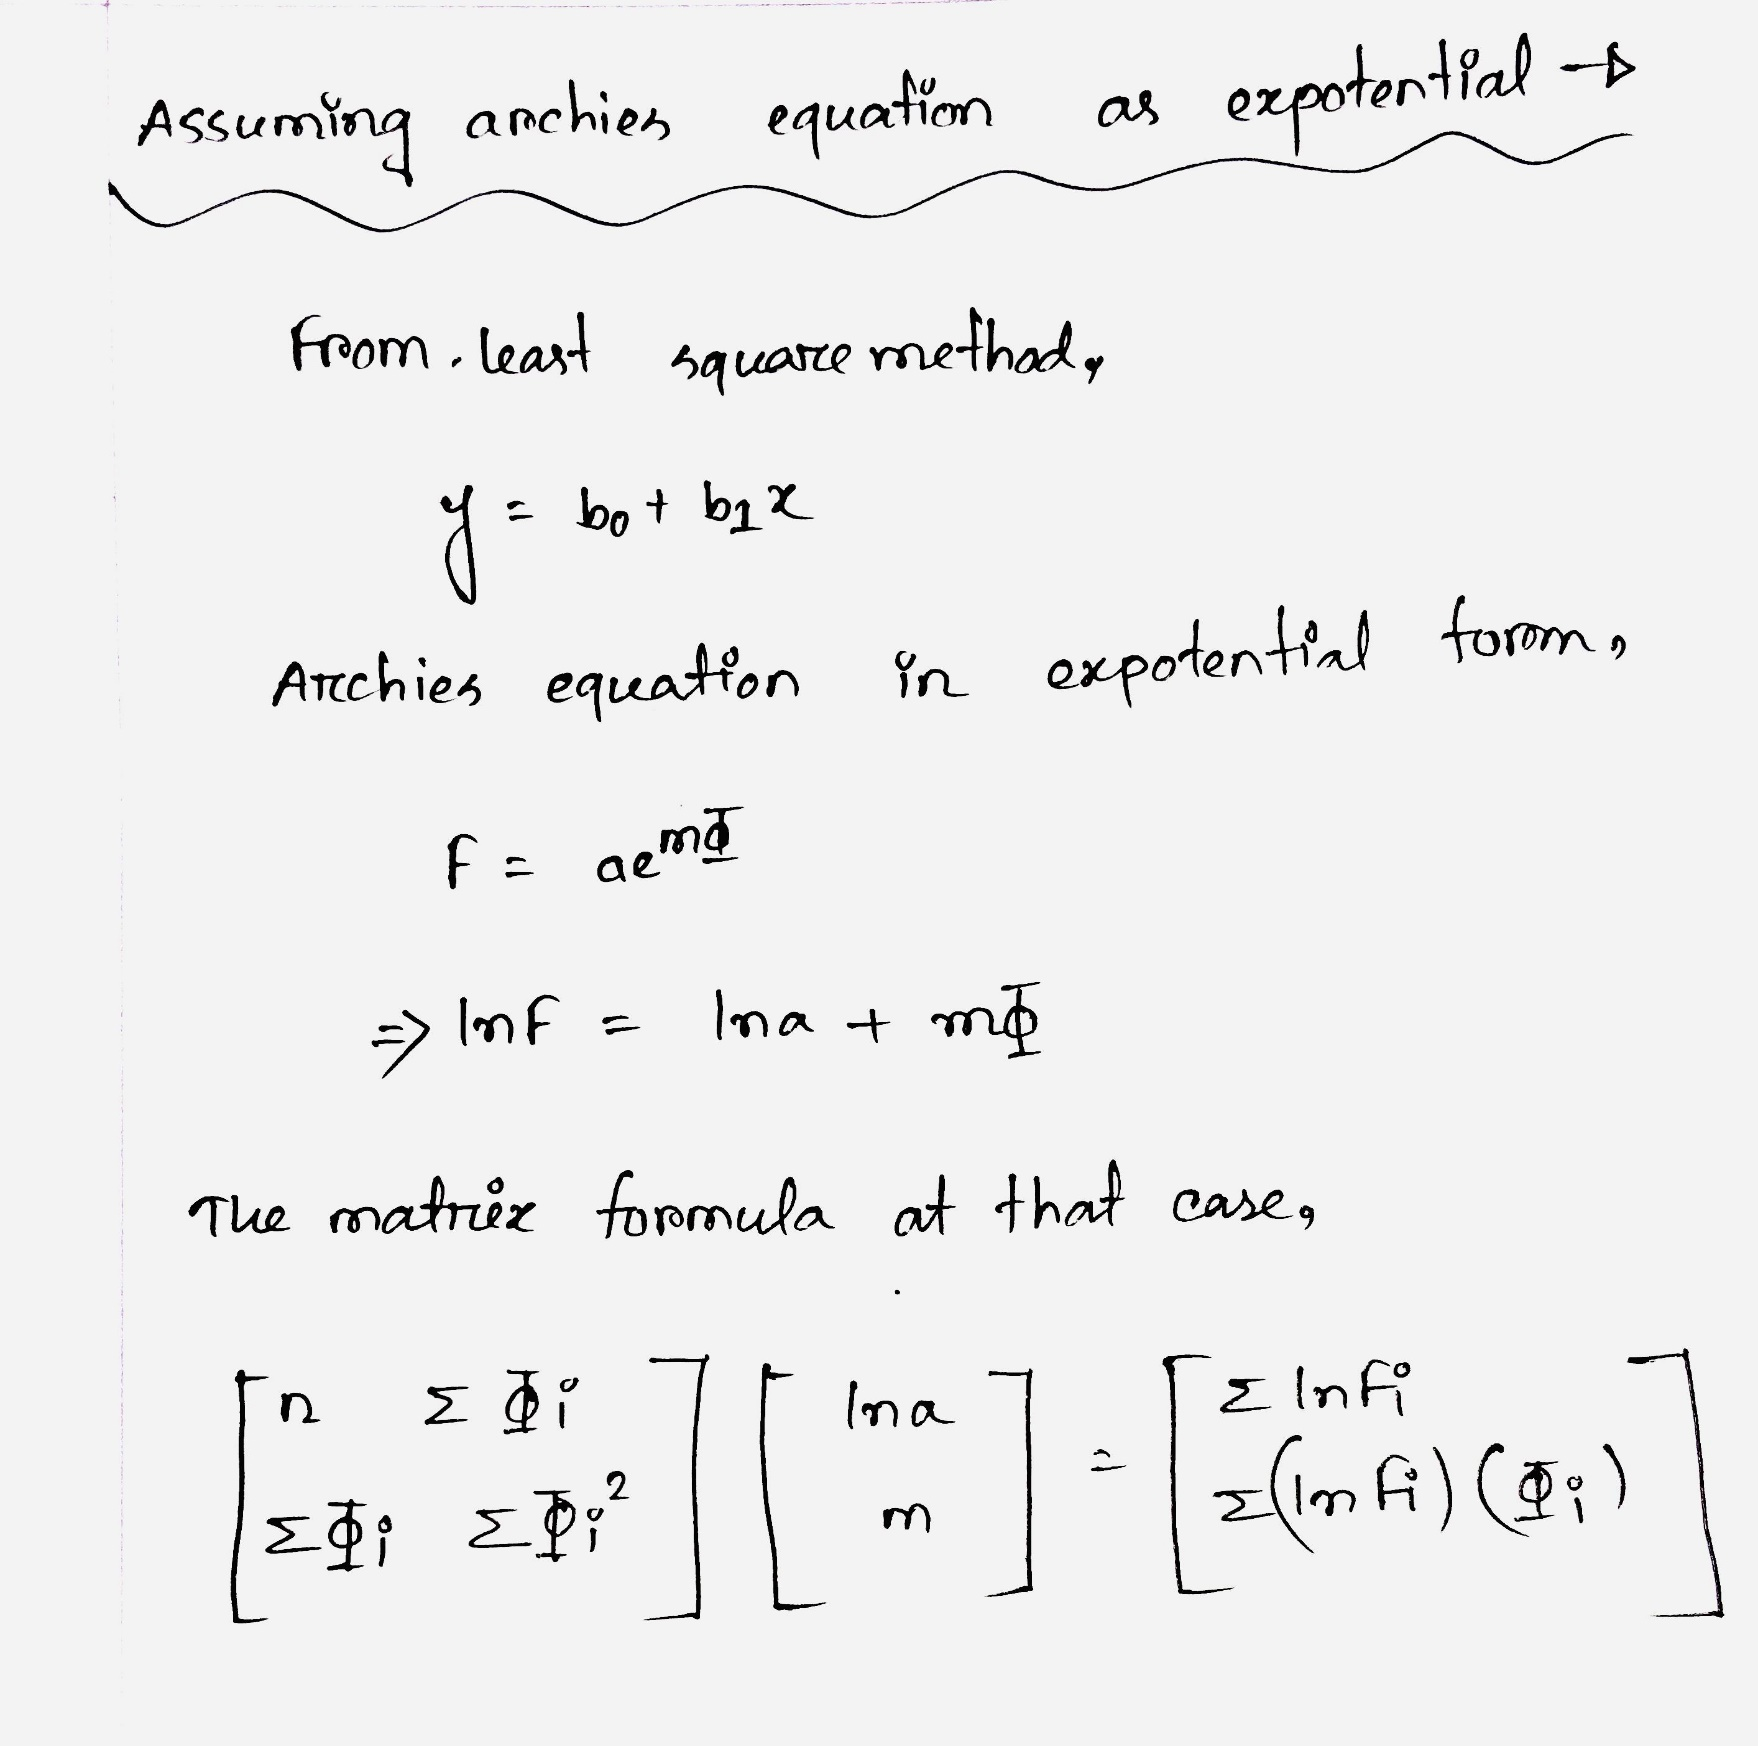 Assuming archies equation as expotential →
From least square method,
y = b0 + b1x
Archies equation in expotential form,
F = ae^mΦ
⇒ lnF = lna + mΦ
The matrix formula at that case,
[n ΣΦi] [lna] = [ΣlnFi]
[ΣΦi ΣΦi²] [m] [Σ(lnFi)(Φi)]